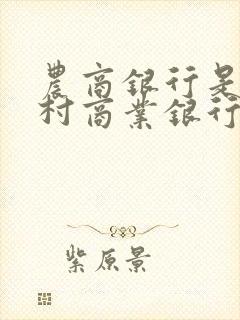 農商銀行是
村商業銀行
紫原景